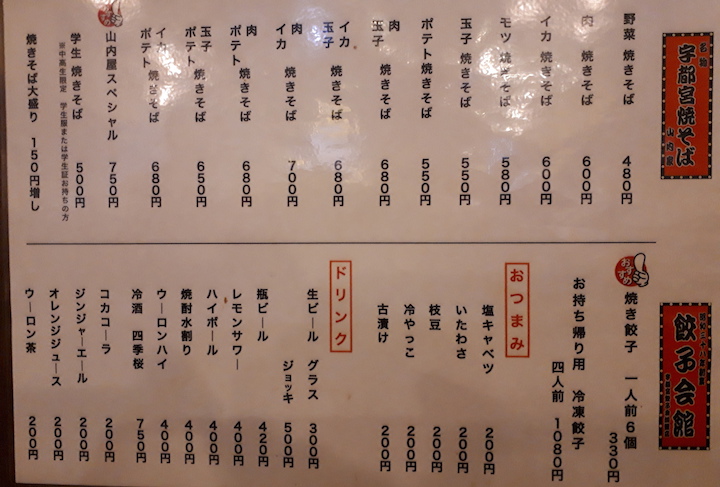 名物
宇都宮焼そば
山内家
野菜 焼きそば 480円
肉 焼きそば 600円
イカ 焼きそば 600円
モツ 焼きそば 580円
玉子 焼きそば 550円
ポテト 焼きそば 550円
肉 玉子 焼きそば 680円
イカ 玉子 焼きそば 680円
肉 イカ 焼きそば 700円
肉 ポテト 焼きそば 680円
玉子 ポテト 焼きそば 650円
イカ ポテト 焼きそば 680円
山内屋スペシャル 750円
学生 焼きそば 500円
※中高生限定 学生服または学生証お持ちの方
焼きそば大盛り 150円増し
昭和三十八年創業
餃子会館
おすすめ
焼き餃子 一人前6個 330円
お持ち帰り用 冷凍餃子
四人前 1080円
おつまみ
塩キャベツ 200円
いたわさ 200円
枝豆 200円
冷やっこ 200円
古漬け 200円
ドリンク
生ビール グラス 300円
ジョッキ 500円
瓶ビール 420円
レモンサワー 400円
ハイボール 400円
焼酎水割り 400円
ウーロンハイ 400円
冷酒 四季桜 750円
コカコーラ 200円
ジンジャーエール 200円
オレンジジュース 200円
ウーロン茶 200円